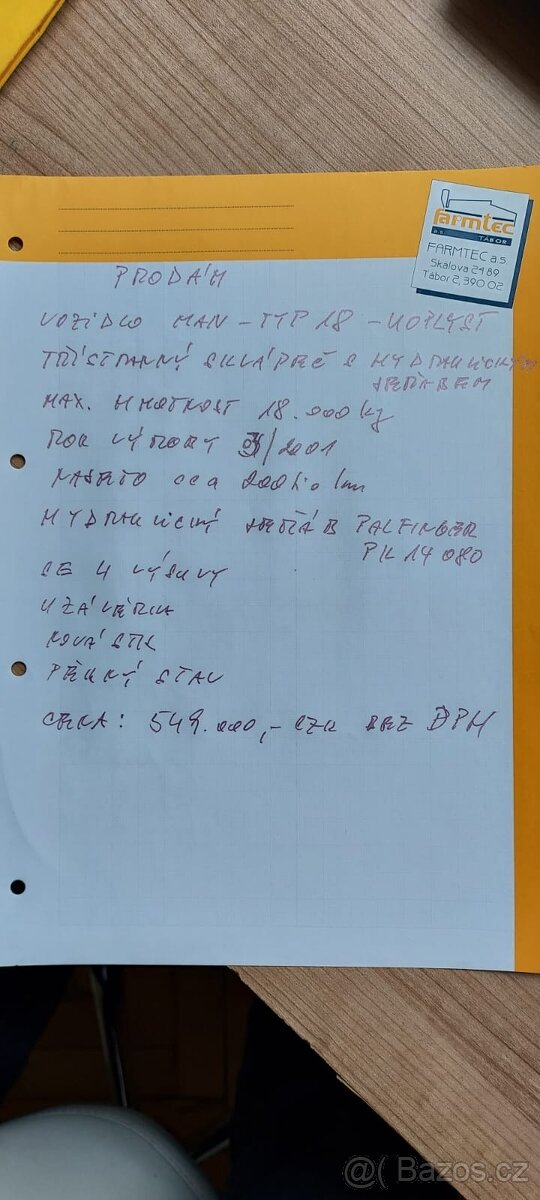 farmtec
a.s. TÁBOR
FARMTEC a.s.
Skalova 2489
Tábor 2, 390 02
PRODÁM
VOZIDLO MAN - TYP 18 -
TŘÍSTRANNÝ SKLÁPĚČ S HYDRAULICKÝM
JEŘÁBEM
MAX. HMOTNOST 18.000 kg
ROK VÝROBY /2001
NAJETO cca km
HYDRAULICKÝ JEŘÁB PALFINGER
PK 14 080
SE 4 VÝSUVY
UZÁVĚRKA
NOVÁ STK
PĚKNÝ STAV
CENA: 549.000,- CZK BEZ DPH
@( Bazos.cz